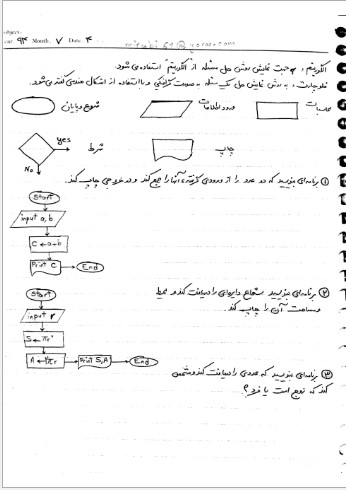 Year: 94 Month: 7 Date: 4
الگوریتم: جهت نمایش روش حل مسئله از "الگوریتم" استفاده می شود.
فلوچارت: به روش نمایش حل یک مسئله به صورت گرافیکی و با استفاده از اشکال هندسی گفته می شود.
محاسبات
ورود اطلاعات
شروع و پایان
yes
شرط
No
چاپ
① برنامه ای بنویسید که دو عدد را از ورودی گرفته آنها را جمع کند و در خروجی چاپ کند.
Start
input a, b
C ← a+b
Print C
End
② برنامه ای بنویسید شعاع دایره ای را دریافت کند و محیط
و مساحت آن را چاپ کند.
Start
input r
S ← πr²
A ← 2πr
Print S,A
End
③ برنامه ای بنویسید که عددی را دریافت کند و مشخص
کند که زوج است یا فرد؟